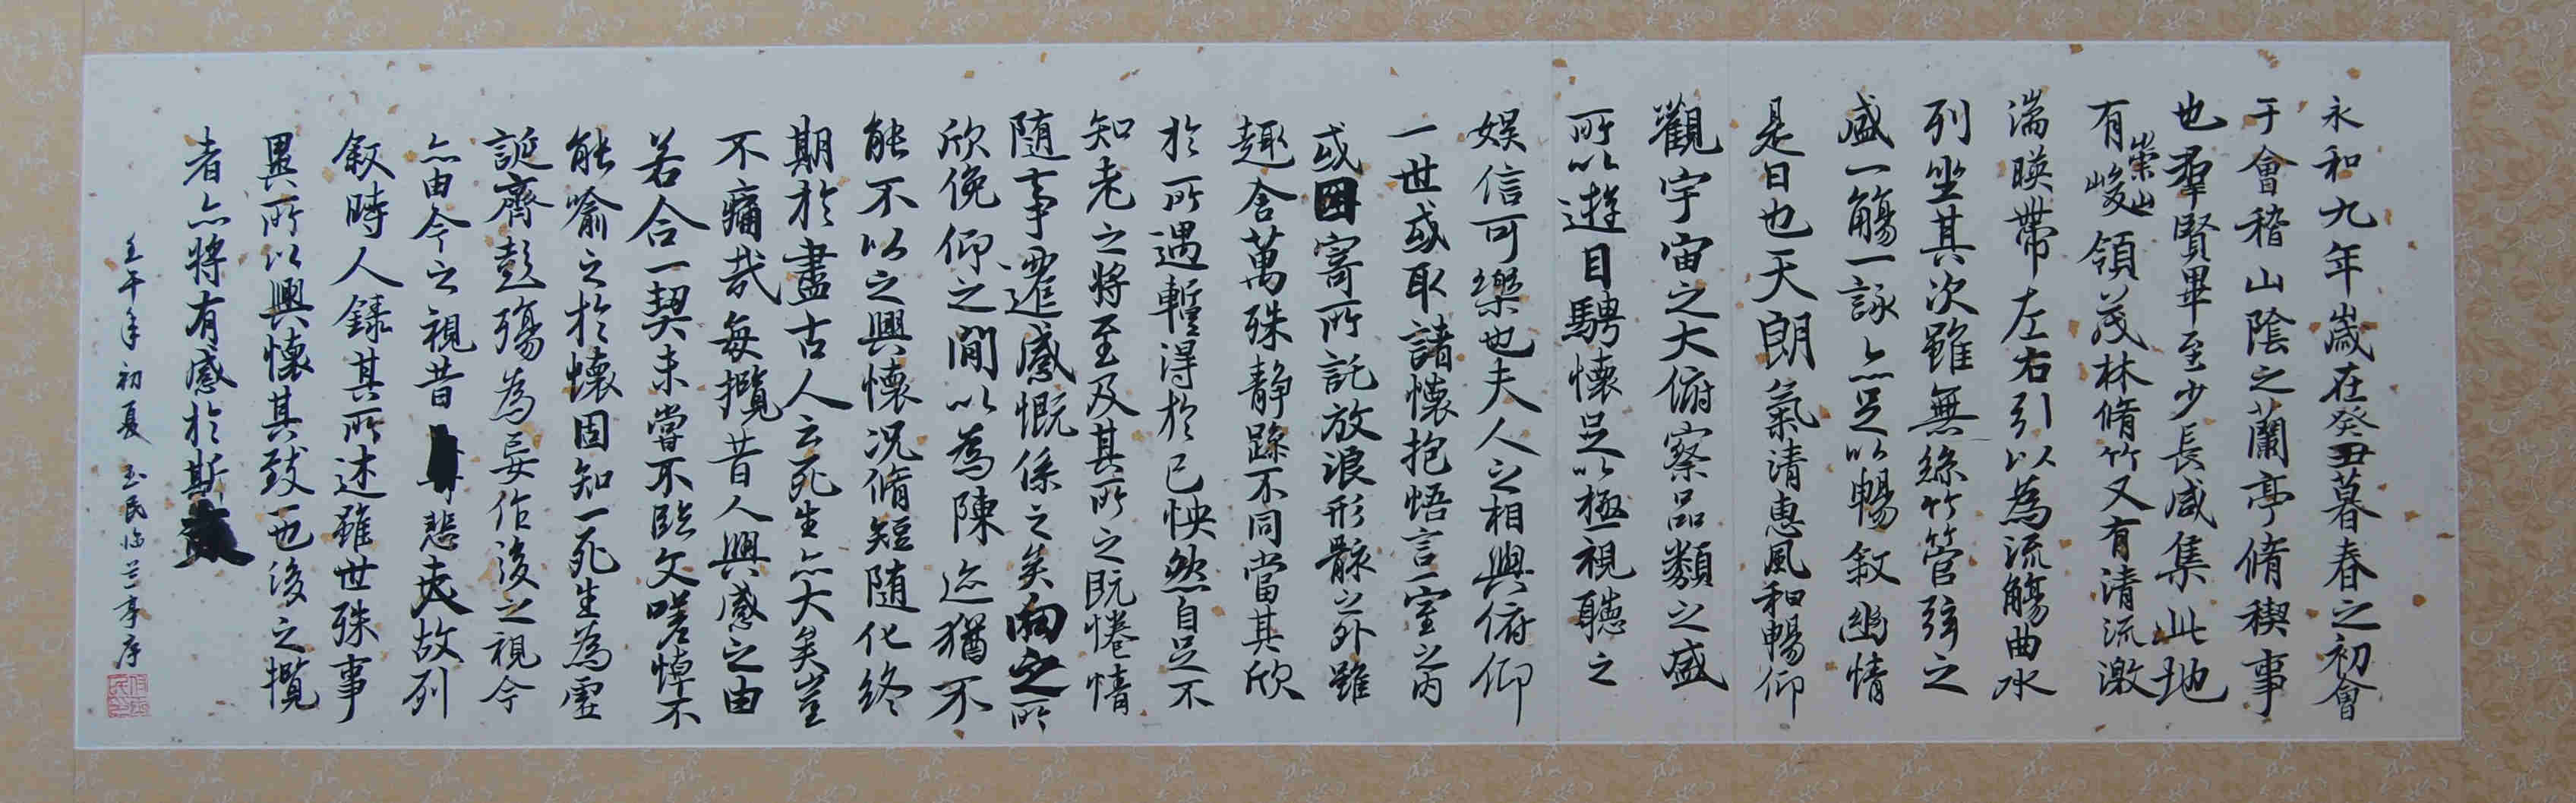 永和九年歲在癸丑暮春之初會
于會稽山陰之蘭亭脩稧事
也羣賢畢至少長咸集此地
有崇山峻領茂林脩竹又有清流激
湍暎帶左右引以為流觴曲水
列坐其次雖無絲竹管弦之
盛一觴一詠亦足以暢敘幽情
是日也天朗氣清惠風和暢仰
觀宇宙之大俯察品類之盛
所以遊目騁懷足以極視聽之
娛信可樂也夫人之相與俯仰
一世或取諸懷抱悟言一室之內
或因寄所託放浪形骸之外雖
趣舍萬殊静躁不同當其欣
於所遇暫得於己怏然自足不
知老之將至及其所之既惓情
随事遷感慨係之矣向之所
欣俛仰之閒以為陳迹猶不
能不以之興懷況脩短随化終
期於盡古人云死生亦大矣豈
不痛哉每攬昔人興感之由
若合一契未嘗不臨文嗟悼不
能喻之於懷固知一死生為虛
誕齊彭殤為妄作後之視今
亦由今之視昔悲夫故列
敘時人錄其所述雖世殊事
異所以興懷其致一也後之攬
者亦將有感於斯文
壬午年初夏 玉民临兰亭序